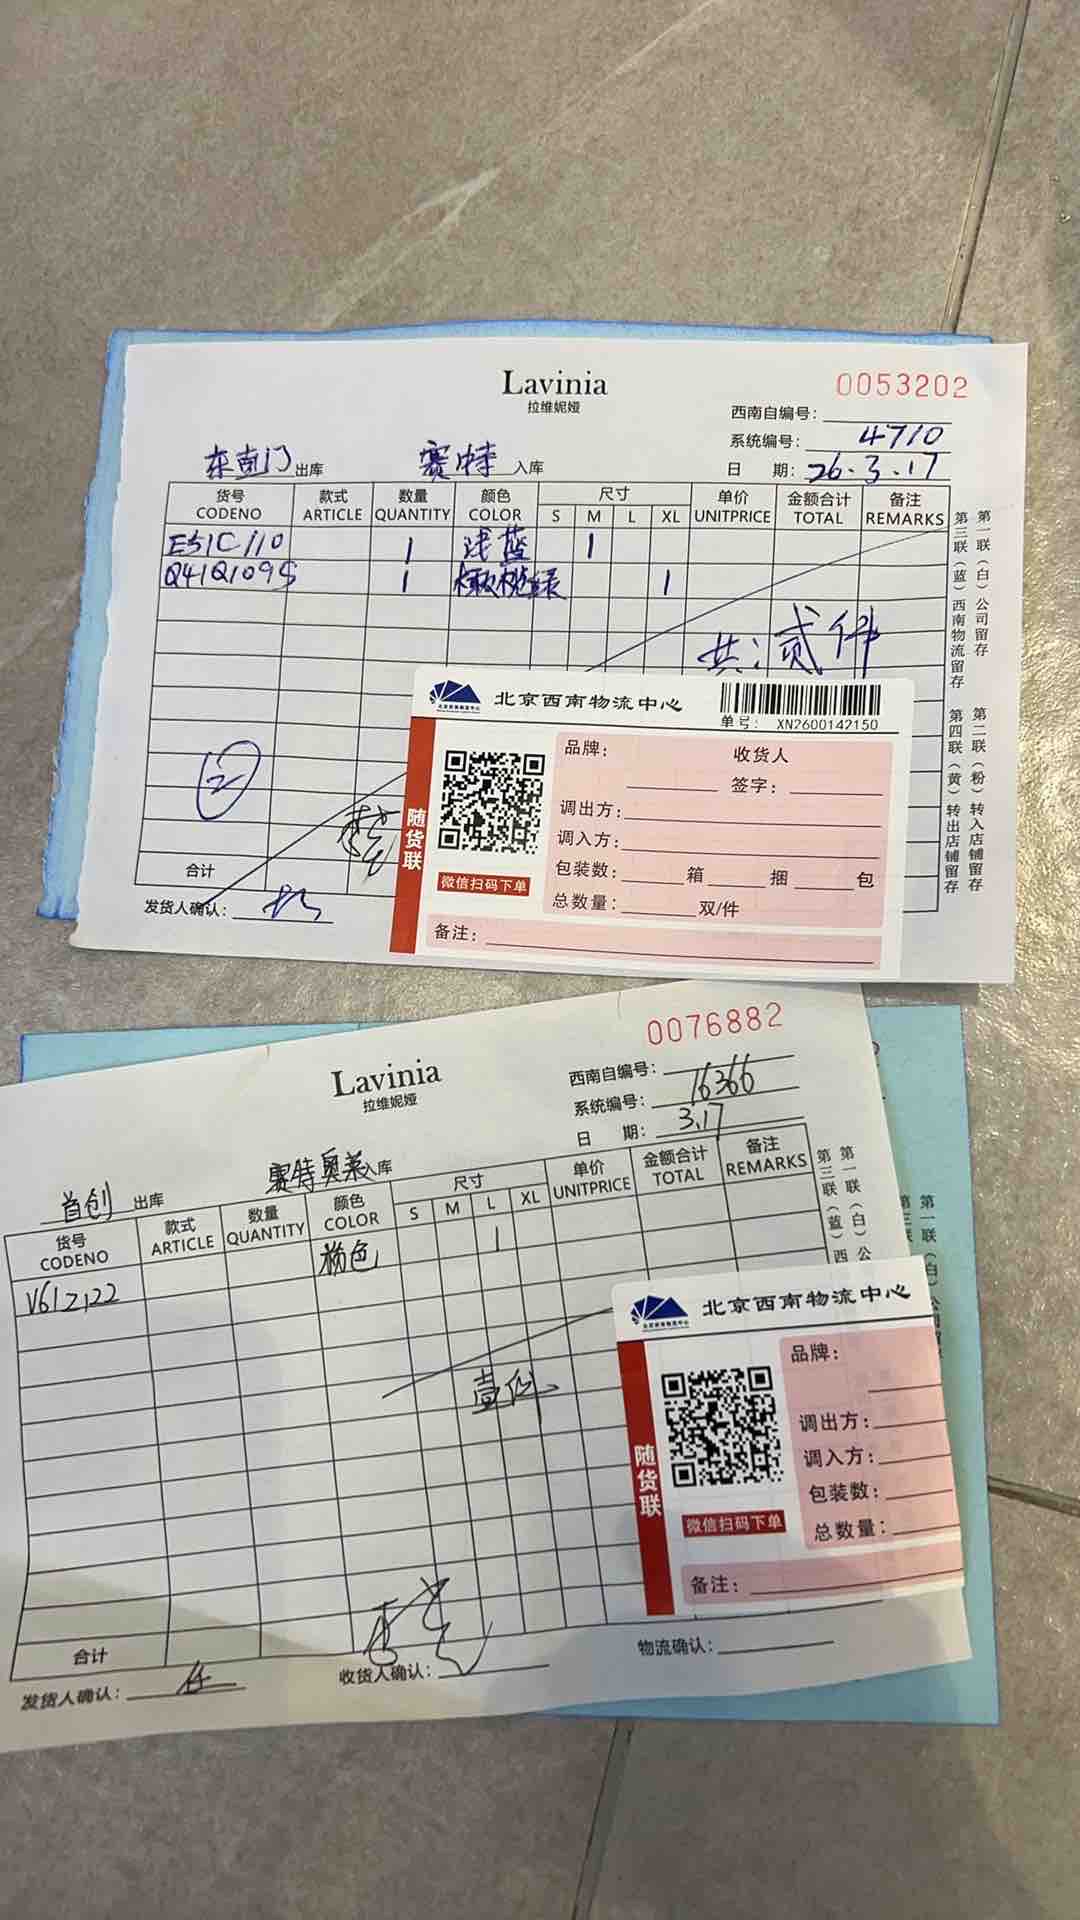 Lavinia
拉维妮娅
0053202
西南自编号:
系统编号: 4710
日 期: 26.3.17
东直门 出库 赛特 入库
货号 款式 数量 颜色 尺寸 单价 金额合计 备注
CODENO ARTICLE QUANTITY COLOR S M L XL UNITPRICE TOTAL REMARKS
E51C110 1 浅蓝 1
Q41Q109S 1 橄榄绿 1
共:贰件
②
合计
发货人确认:
第一联(白)公司留存 第二联(粉)转入店铺留存
第三联(蓝)西南物流留存 第四联(黄)转出店铺留存
北京西南物流中心
单号: XN2600142150
随货联
微信扫码下单
品牌: 收货人
签字:
调出方:
调入方:
包装数: 箱 捆 包
总数量: 双/件
备注:
Lavinia
拉维妮娅
0076882
西南自编号:
系统编号: 16366
日 期: 3.17
首创 出库 赛特奥莱 入库
货号 款式 数量 颜色 尺寸 单价 金额合计 备注
CODENO ARTICLE QUANTITY COLOR S M L XL UNITPRICE TOTAL REMARKS
粉色 1
V61Z122
壹件
合计
发货人确认: 收货人确认: 物流确认:
第一联(白)公
第三联(蓝)西
第一联(白)
北京西南物流中心
北京西南物流中心
随货联
微信扫码下单
品牌:
调出方:
调入方:
包装数:
总数量:
备注: